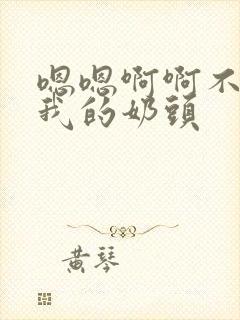 嗯嗯啊啊不
我的奶頭
黄琴